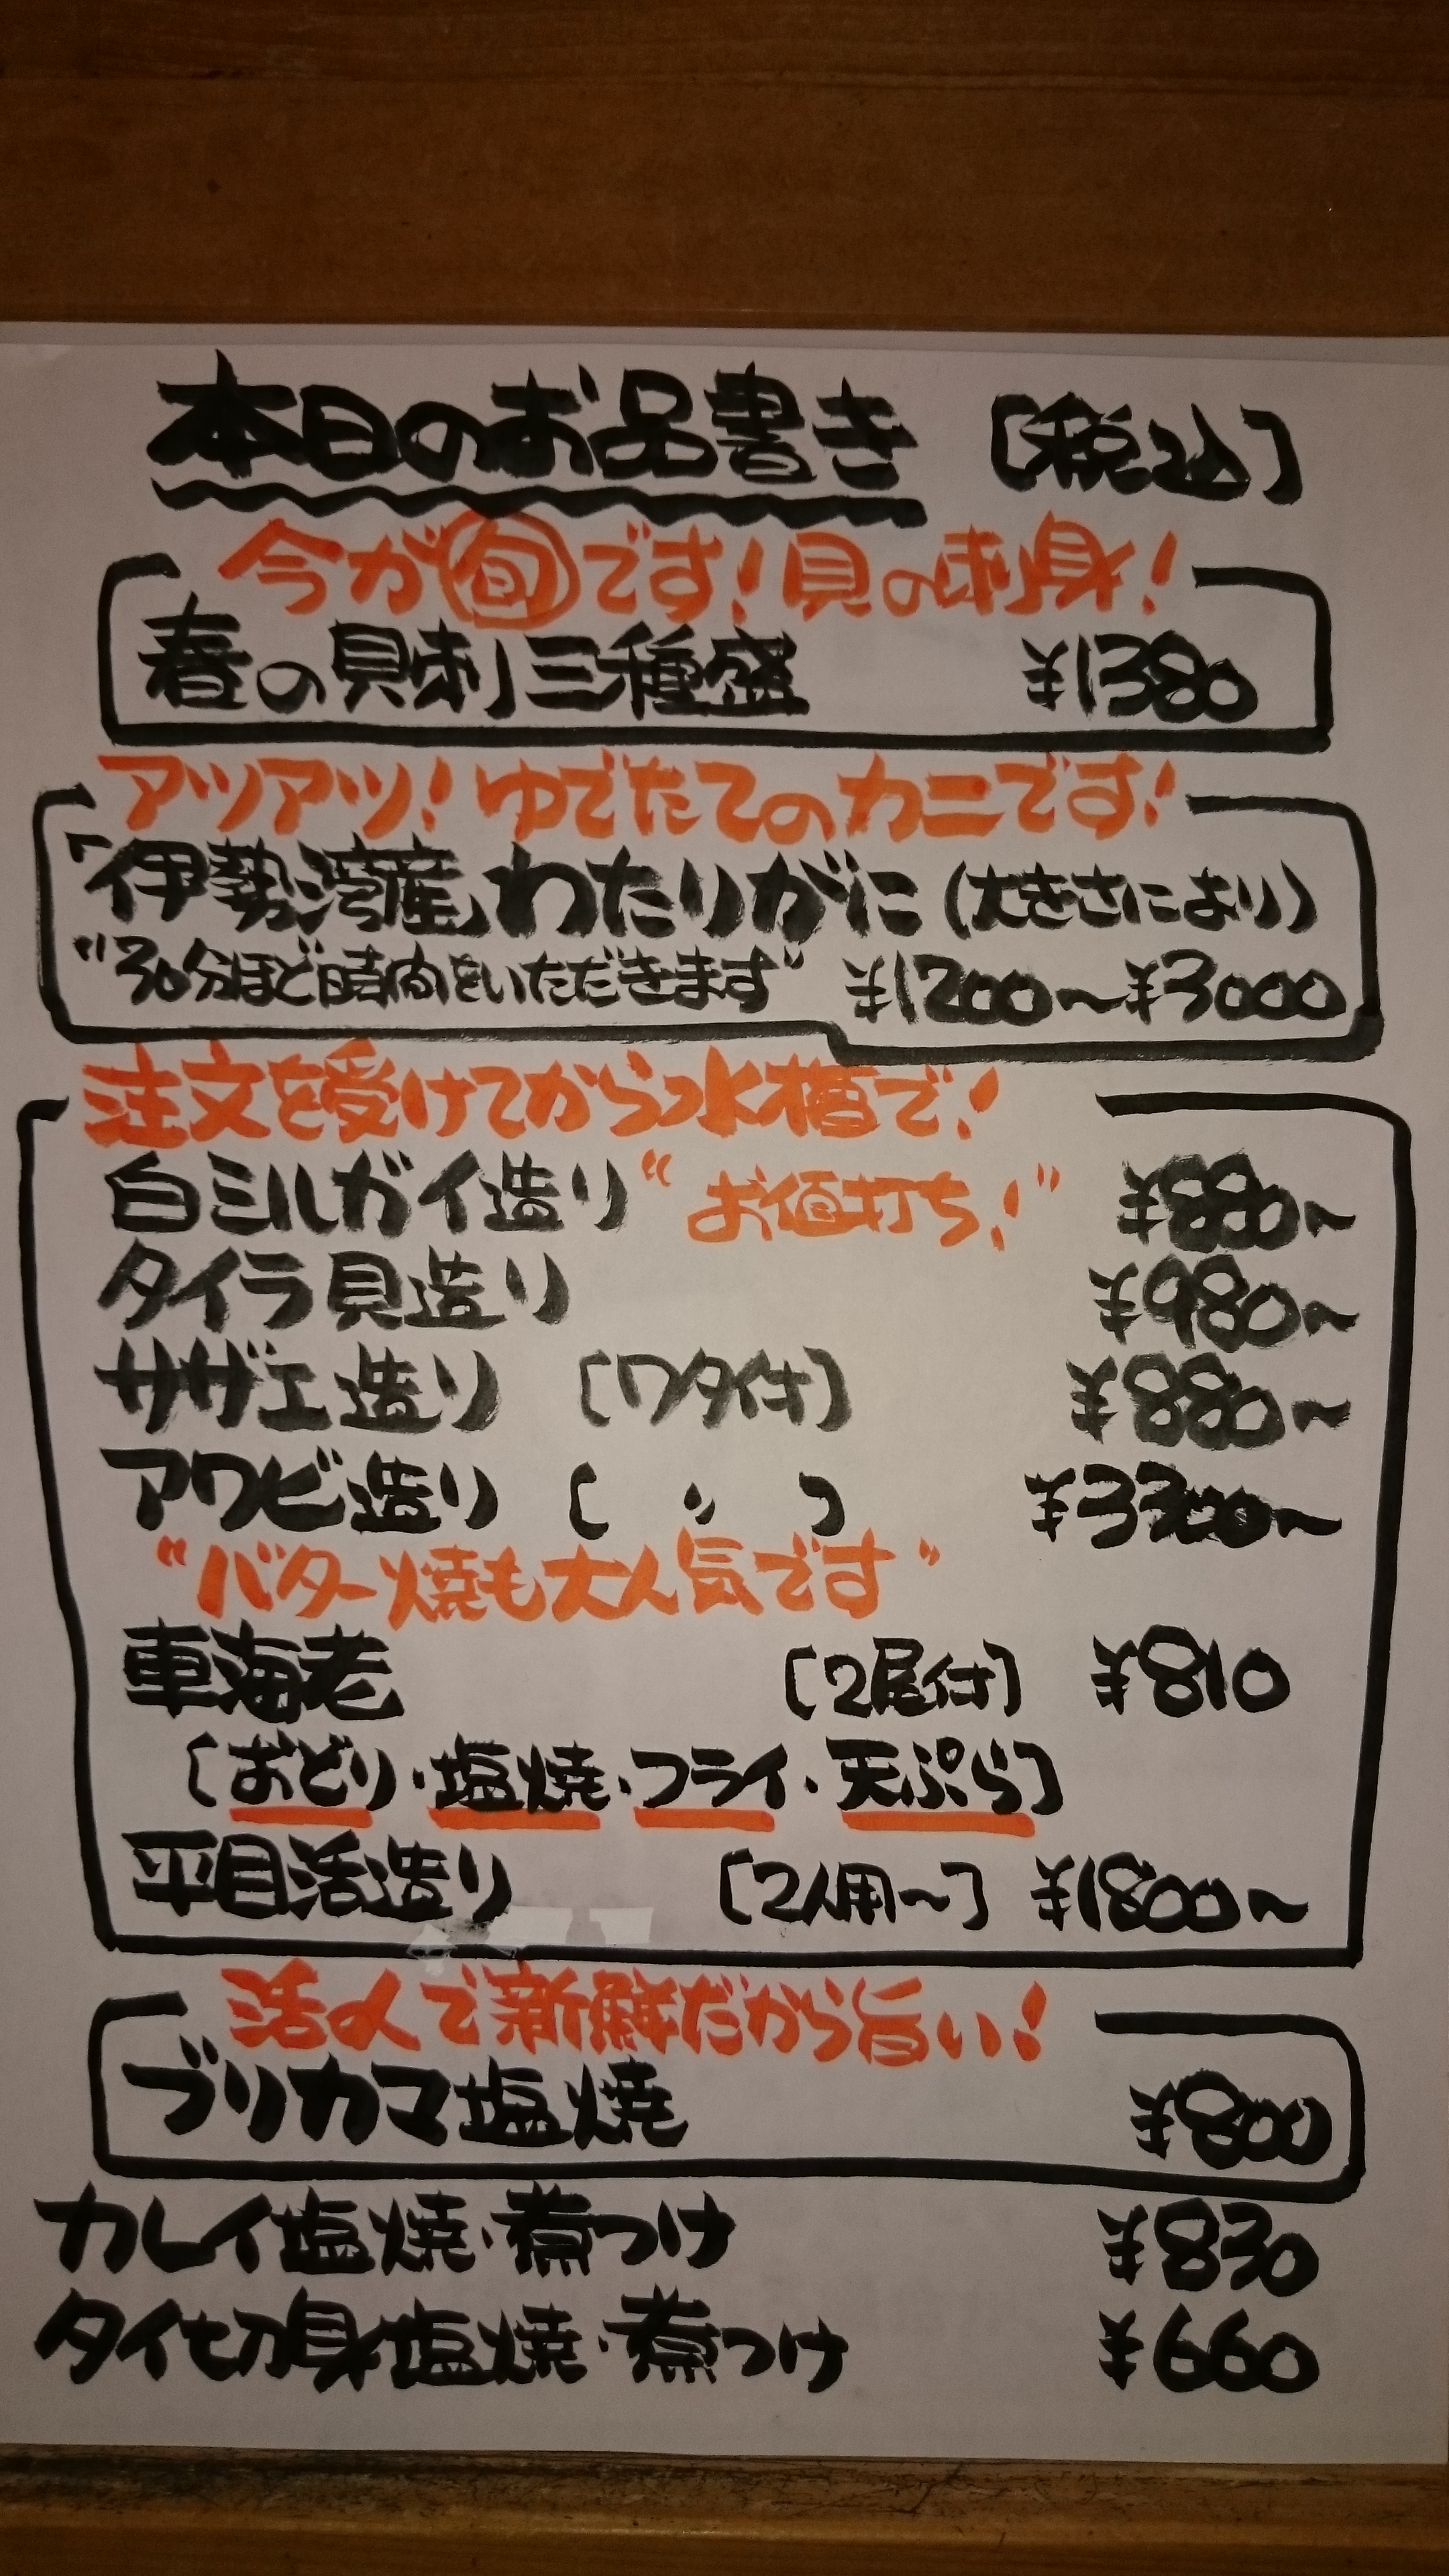 本日のお品書き [税込]
今が旬です!貝の刺身!
春の貝刺三種盛 ¥1380
アツアツ!ゆでたてのカニです!
「伊勢湾産」わたりがに(大きさにより)
"30分ほど時間をいただきます" ¥1200〜¥3000
注文を受けてから水槽で!
白ミルガイ造り "お値打ち!" ¥880〜
タイラ貝造り ¥980〜
サザエ造り [ワタ付] ¥880〜
アワビ造り [〃] ¥3300〜
"バター焼も大人気です"
車海老 [2尾付] ¥810
[おどり・塩焼・フライ・天ぷら]
平目活造り [2人用〜] ¥1800〜
活〆で新鮮だから旨い!
ブリカマ塩焼 ¥800
カレイ塩焼・煮つけ ¥830
タイ切身塩焼・煮つけ ¥660